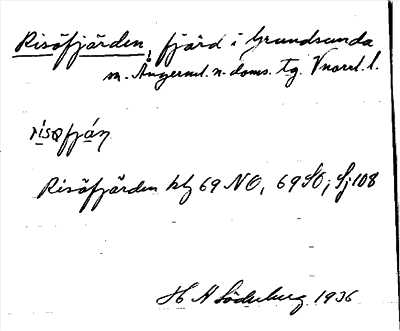 Risöfjärden, fjärd i Grundsunda
sn. Ångerml. n. doms. tg. Vnorrl. l.
rìsəfján
Risöfjärden kbl 69 NO, 69 SO; Sj 108
H A Söderberg 1936